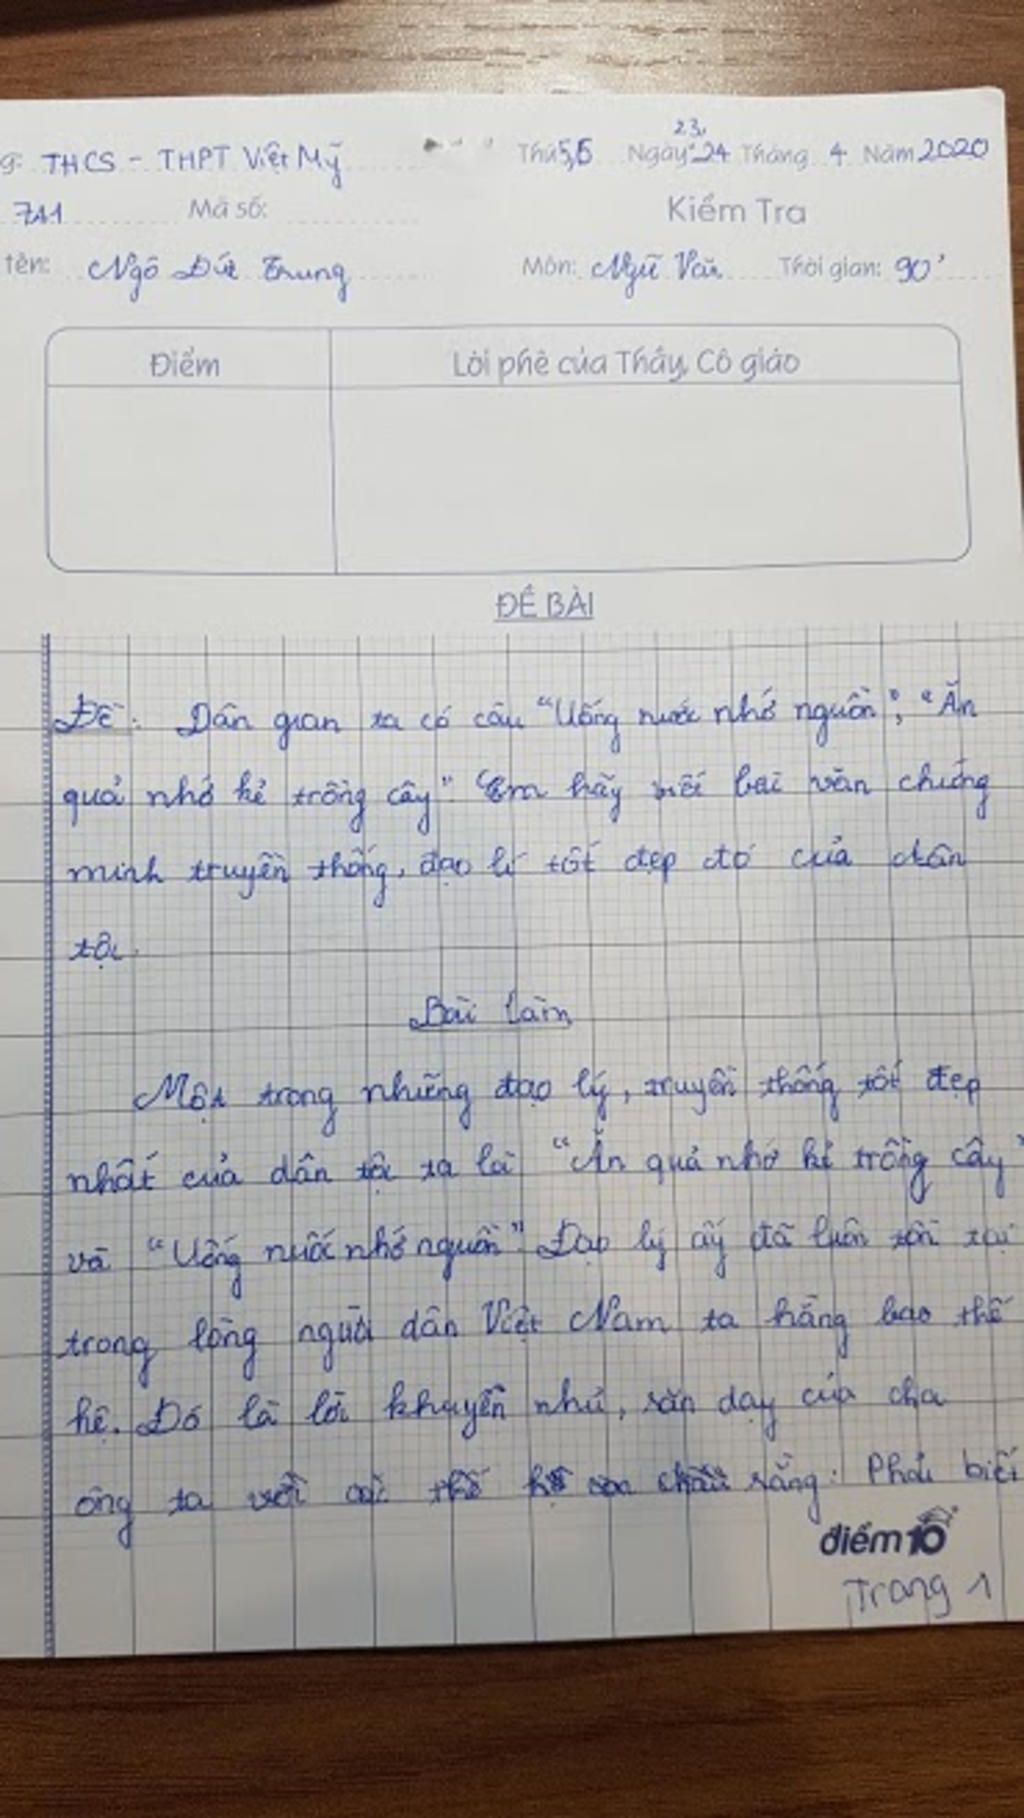 g: THCS - THPT Việt Mỹ Thứ 5,6 Ngày 23, 24 Tháng 4 Năm 2020
7A1 Mã số: Kiểm Tra
tên: Ngô Đức Trung Môn: Ngữ Văn Thời gian: 90'
Điểm Lời phê của Thầy, Cô giáo
ĐỀ BÀI
Đề: Dân gian ta có câu "Uống nước nhớ nguồn", "Ăn
quả nhớ kẻ trồng cây". Em hãy viết bài văn chứng
minh truyền thống, đạo lí tốt đẹp đó của dân
tộc.
Bài làm
Một trong những đạo lý, truyền thống tốt đẹp
nhất của dân tộc ta là "Ăn quả nhớ kẻ trồng cây"
và "Uống nước nhớ nguồn". Đạo lý ấy đã luôn tồn tại
trong lòng người dân Việt Nam ta hàng bao thế
hệ. Đó là lời khuyên nhủ, răn dạy của cha
ông ta với các thế hệ con cháu rằng: Phải biết
điểm 10
Trang 1